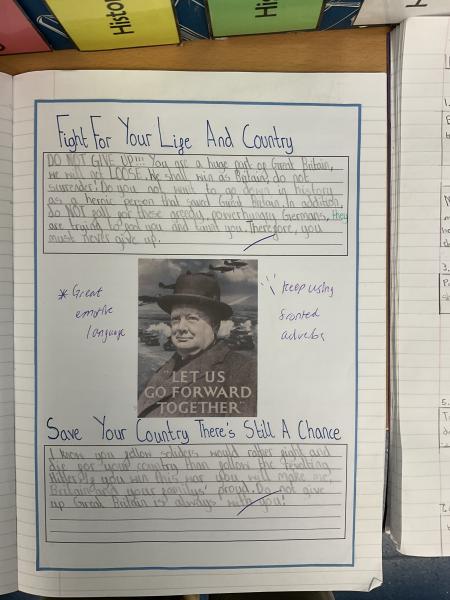 Histo
Hist
H
Fight For Your Life And Country
DO NOT GIVE UP!!! You are a huge part of Great Britain,
we will not LOOSE. We shall win as Britain, do not
surrender! Do you not want to go down in history
as a heroic person that saved Great Britain. In addition,
do NOT fall for these greedy, powerhungry Germans, they
are trying to fool you and taunt you. Therefore, you
must never give up.
* Great
emotive
language
keep using
fronted
adverbs
"LET US
GO FORWARD
TOGETHER"
Save Your Country There's Still A Chance
I know you fellow soldiers would rather fight and
die for your country than follow the
Hitler. If you win this war you will make me,
Britain and your familys' proud. Do not give
up Great Britain is always with you!